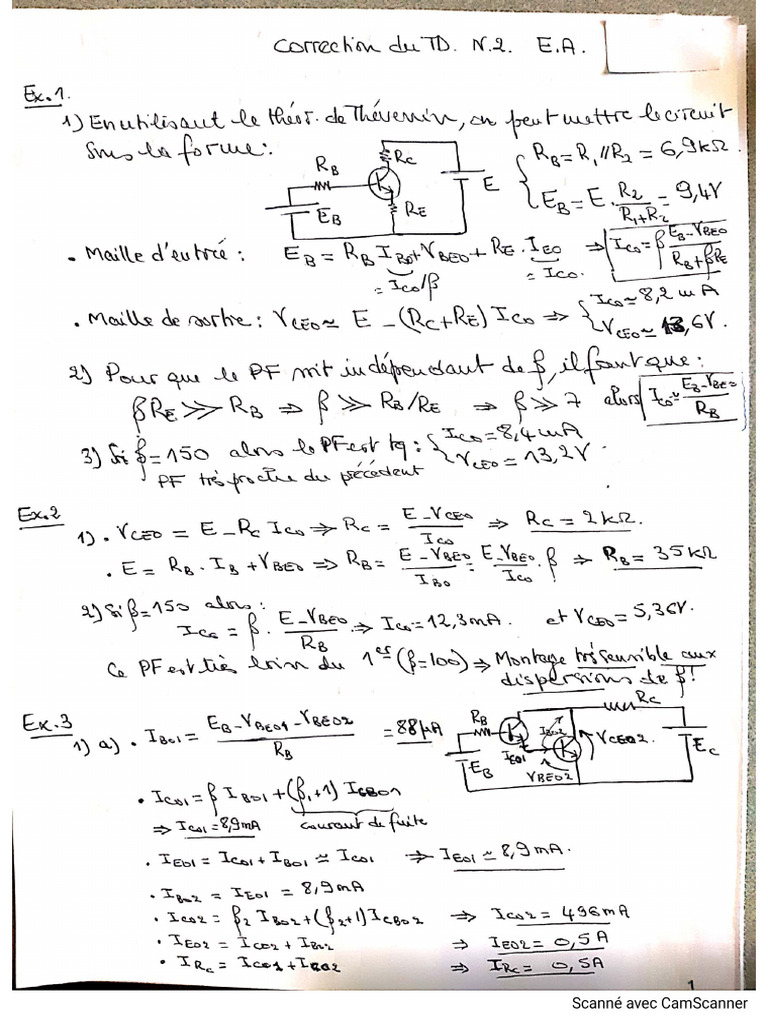 Correction du TD. N.2. E.A.
Ex.1.
1) En utilisant le théor. de Thévenin, on peut mettre le circuit
sous la forme:
RB RC E EB RE
RB = R1 // R2 = 6,9 kΩ
EB = E. R2/(R1+R2) = 9,4V
• Maille d'entrée: EB = RB IB0 + VBE0 + RE. IE0 ⇒ IC0 = β (EB - VBE0)/(RB + βRE)
= IC0/β = IC0.
• Maille de sortie: VCE0 ≃ E - (RC+RE) IC0 ⇒ { IC0 ≃ 8,2 mA
VCE0 ≃ 13,6V.
2) Pour que le PF soit indépendant de β, il faut que:
βRE ≫ RB ⇒ β ≫ RB/RE ⇒ β ≫ 7 alors IC0 ≃ (EB - VBE0)/RB
3) Si β = 150 alors le PF est tq: { IC0 = 8,4 mA
VCE0 = 13,2V.
PF très proche du précédent
Ex.2
1) • VCE0 = E - RC IC0 ⇒ RC = (E - VCE0)/IC0 ⇒ RC = 2 kΩ.
• E = RB. IB + VBE0 ⇒ RB = (E - VBE0)/IB0 = (E - VBE0)/IC0 . β ⇒ RB = 35 kΩ
2) Si β = 150 alors:
IC0 = β. (E - VBE0)/RB ⇒ IC0 = 12,3 mA. et VCE0 = 5,36V.
Ce PF est très loin du 1er (β=100) ⇒ Montage très sensible aux
dispersions de β!
Ex.3
1) a) • IB01 = (EB - VBE01 - VBE02)/RB = 88 μA
RB EB IE01 IB02 VBE02 VCE02. RC EC
• IC01 = β IB01 + (β1+1) ICB01
⇒ IC01 = 8,9 mA courant de fuite
• IE01 = IC01 + IB01 ≃ IC01 ⇒ IE01 ≃ 8,9 mA.
• IB02 = IE01 = 8,9 mA
• IC02 = β2 IB02 + (β2+1) ICB02 ⇒ IC02 = 496 mA
• IE02 = IC02 + IB02 ⇒ IE02 = 0,5 A
• IRC = IC01 + IB02 ⇒ IRC = 0,5A
1
Scanné avec CamScanner